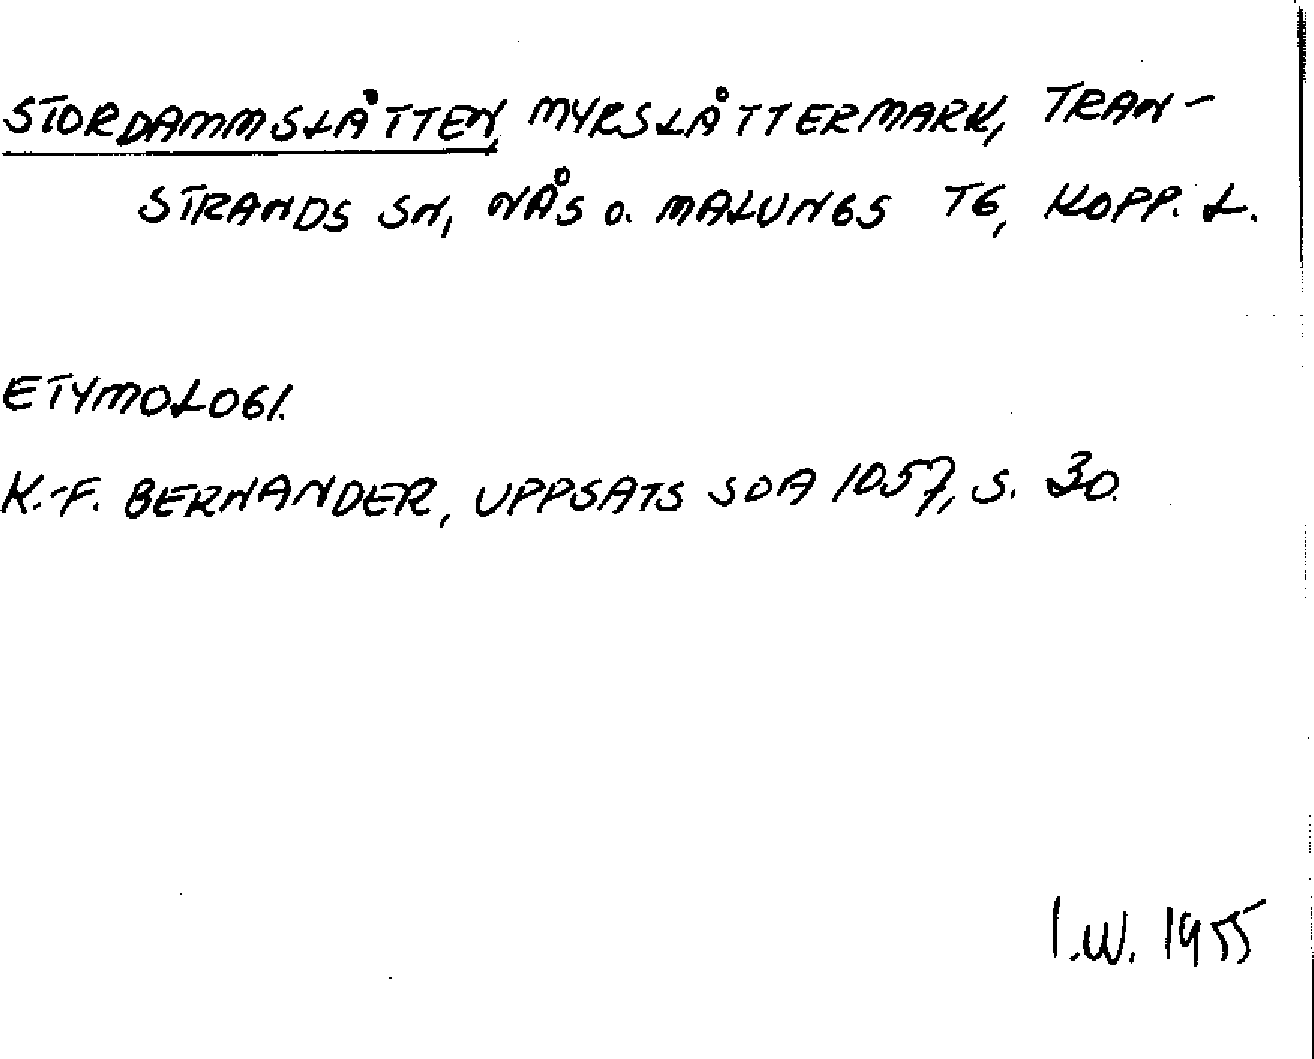 STORDAMMSLÅTTEN, MYRSLÅTTERMARK, TRAN-
STRANDS SN, NÅS o. MALUNGS TG, KOPP. L.
ETYMOLOGI.
K.-F. BERNANDER, UPPSATS SOA 1057, S. 30.
I.W. 1955